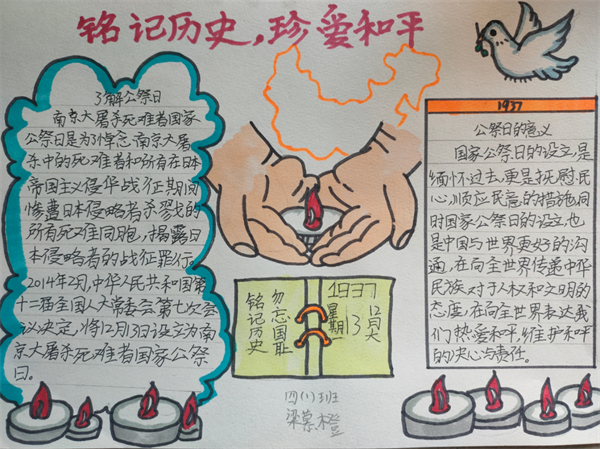 铭记历史,珍爱和平
了解公祭日
南京大屠杀死难者国家
公祭日是为了悼念南京大屠
杀中的死难者和所有在日本
帝国主义侵华战征期间
惨遭日本侵略者杀戮的
所有死难同胞,揭露日
本侵略者的战征罪行。
2014年2月,中华人民共和国第
十二届全国人大常委会第七次会
议决定,将12月13日设立为南
京大屠杀死难者国家公祭
日。
铭记历史
勿忘国耻
1937
12月
13
星期一
四(1)班
梁慕橙
1937
公祭日的意义
国家公祭日的设立,是
缅怀过去,更是抚慰民
心,顺应民意的措施,同
时国家公祭日的设立,也
是中国与世界更好的沟
通,在向全世界传递中华
民族对于人权和文明的
态度,在向全世界表达我
们热爱和平,维护和平
的决心与责任。